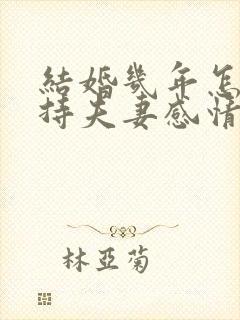 結婚幾年怎
持夫妻感情
林亞菊